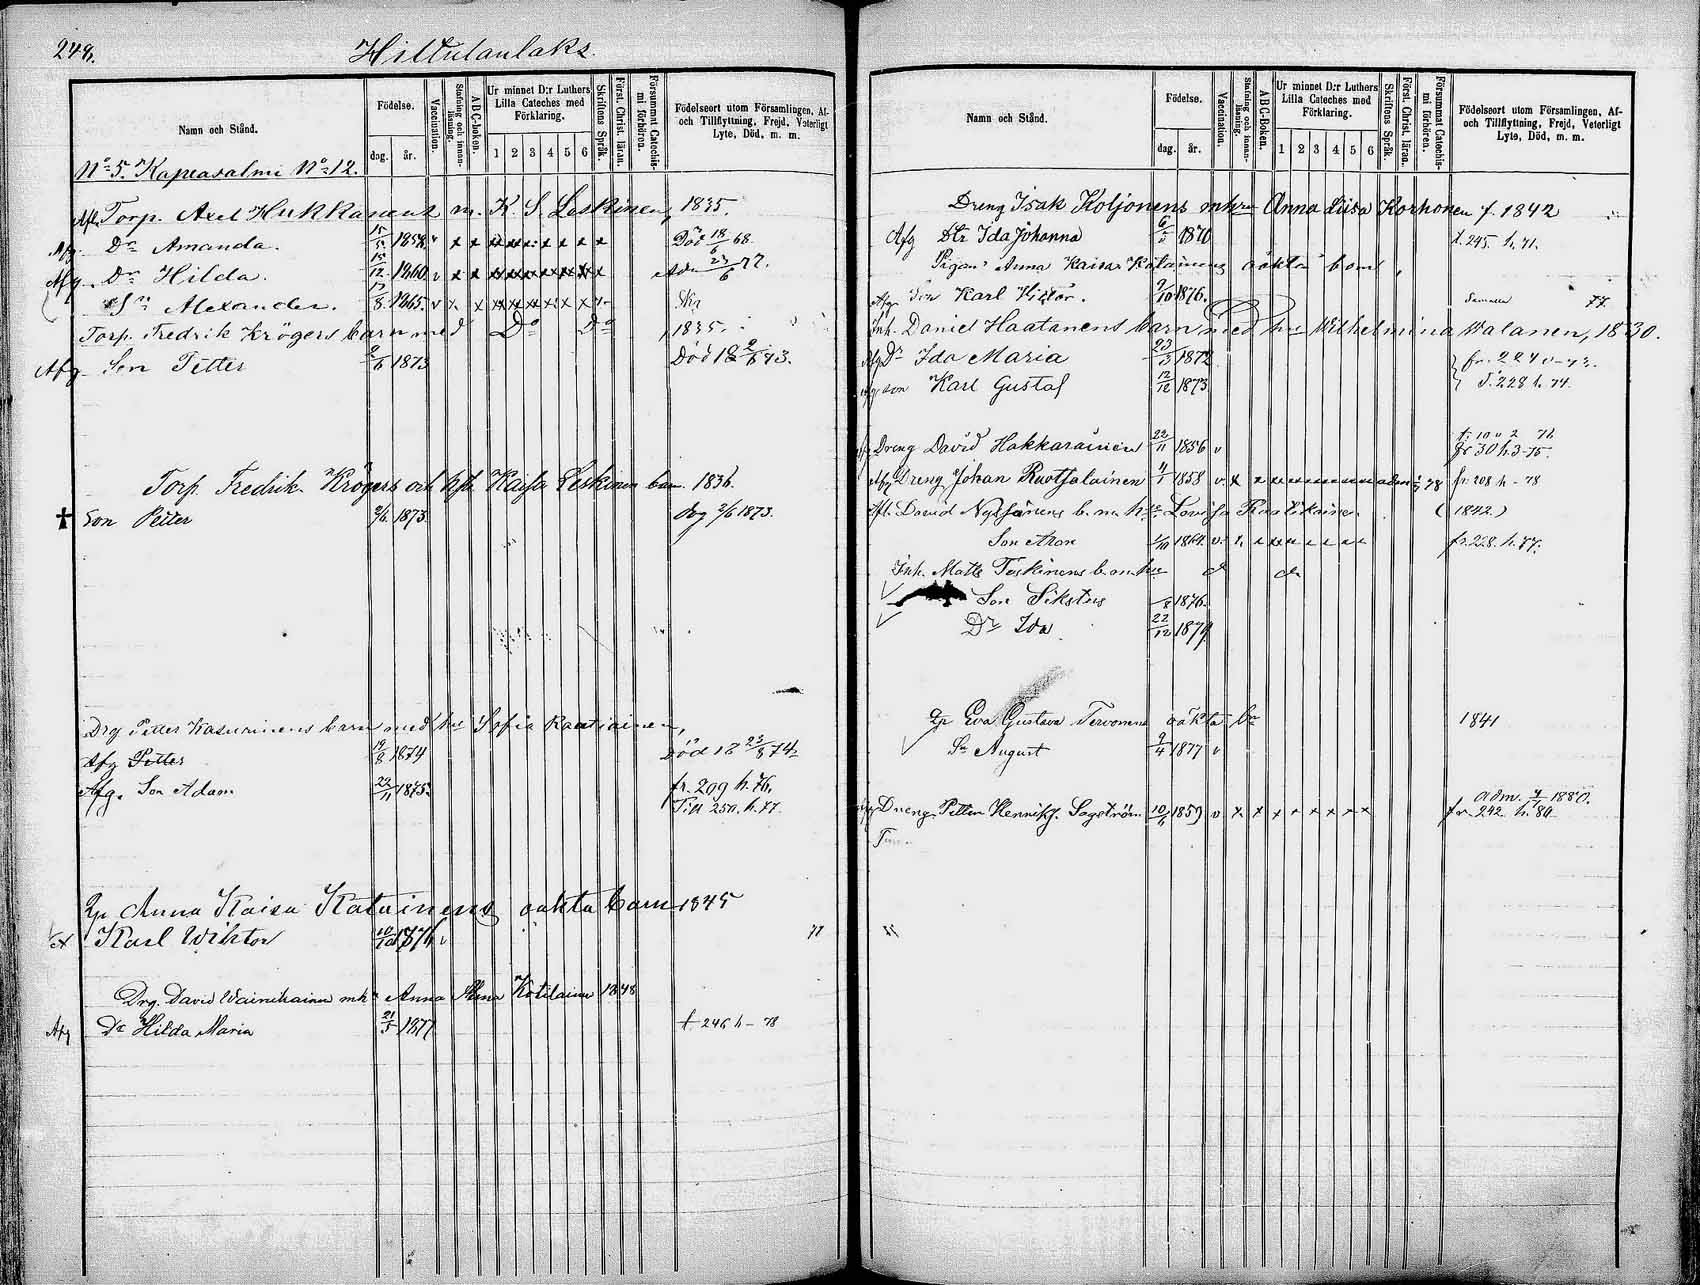 248.
Hiltulanlaks.
Namn och Stånd.
Födelse.
dag. år.
Vaccination.
Stafning och innan-läsning.
A B C-boken.
Ur minnet D:r Luthers Lilla Cateches med Förklaring.
1 2 3 4 5 6
Skriftens Språk.
Först. Christ. läran.
Försummt Catechis-mi förhören.
Födelseort utom Församlingen, Af- och Tillflyttning, Frejd, Veterligt Lyte, Död, m. m.
No 5. Kapeasalmi No 12.
Torp. Axel Hukkanens m. K. S Leskinen, 1835.
Afg. Dr Amanda. 1858. v x x Död 18 68.
Afg. Dr Hilda. 15/12 1860 v x x 23/6 77.
Sn Alexander. 17/8 1865. v x x
Torp. Fredrik Krögers barn med Do Do, 1835.
Afg Son Petter 2/6 1873 Död 18 2/6 73.
Torp. Fredrik Krögers och hst. Kaisa Leskinen barn. 1836.
† Son Petter 2/6. 1873. dog 2/6 1873.
Drg Petter Kasurinens barn med hu Sofia Rautiainen,
Afg Petter 19/8 1874 Död 18 23/8 74.
Afg. Son Adam 22/11 1875. fr. 209 h. 76.
Till 250. h. 77.
Qp Anna Kaisa Katainens oäkta barn 1845
Karl Wiktor 10/10 1876 v 77
Drg. David Wainikainen mh Anna Stina Kotilainen 1848
Afg Dr Hilda Maria 21/5 1877 t 246 h - 78
Namn och Stånd.
Födelse.
dag. år.
Vaccination.
Stafning och innan-läsning.
A B C-Boken.
Ur minnet D:r Luthers Lilla Cateches med Förklaring.
1 2 3 4 5 6
Skriftens Språk.
Först. Christ. läran.
Försummt Catechis-mi förhören.
Födelseort utom Församlingen, Af- och Tillflyttning, Frejd, Veterligt Lyte, Död, m. m.
Dreng Isak Koljonens mhru Anna Liisa Korhonen f. 1842
Afg Dtr Ida Johanna 1870 t. 245. h. 71.
Pigan Anna Kaisa Katainens oäkta barn,
Afg Son Karl Victor. 9/10 1876. 77.
Inh. Daniel Haatanens barn med hu Wilhelmina Walanen, 1830.
Afg Dr Ida Maria 23/3 1872 fr. 224
Son Karl Gustaf 12/12 1873 228 h. 74.
Dreng David Hakkarainen 22/11 1856 v
fr 30 h. 3-75.
Afg Dreng Johan Ruotsalainen 4/1 1858 v. x x x adm 78 fr. 208 h - 78
David Nyssönens b. m. h. Lovisa Raatikainen (1842.)
Son Aron 1/10 1864. v. x fr. 228. h. 77.
Inh. Matts Teskinens b. m. hu d d
Son Sikstus /8 1876.
Dr Ida 22/12 1879
Qp Eva Gustava Tervonens oäkta bn 1841
Sn August 9/4 1877 v
Dreng Petter Henrik Sagström 10/6 1859 v x x x x x x x x adm. 1880.
fr 242. h. 80.